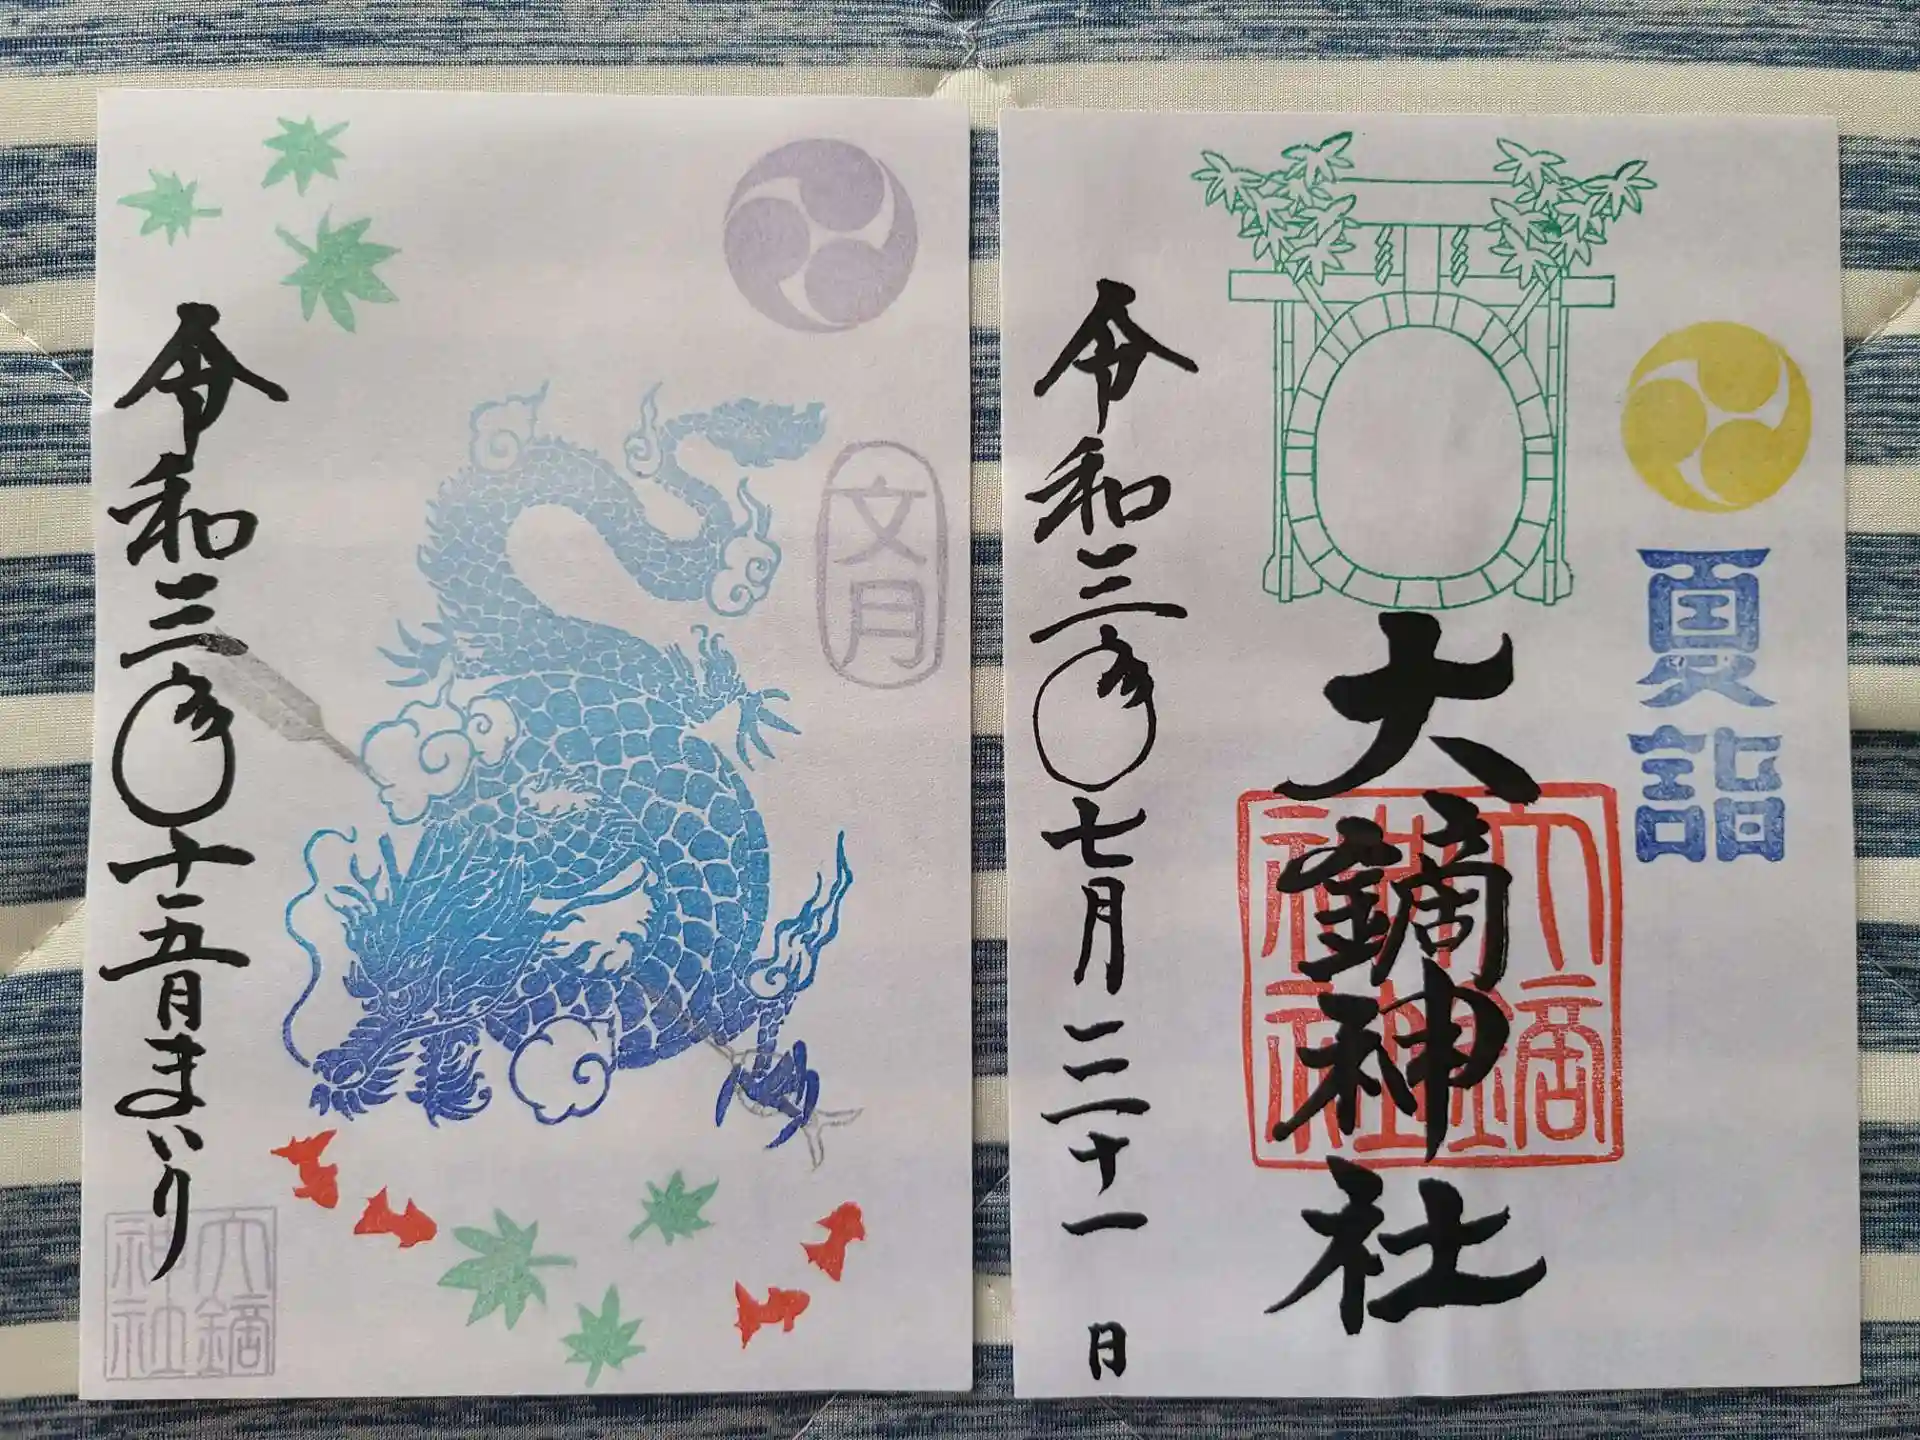 文月
令和三年 十五日まいり
大鏑
神社
夏詣
大鏑神社
大鏑
神社
令和三年七月二十一日